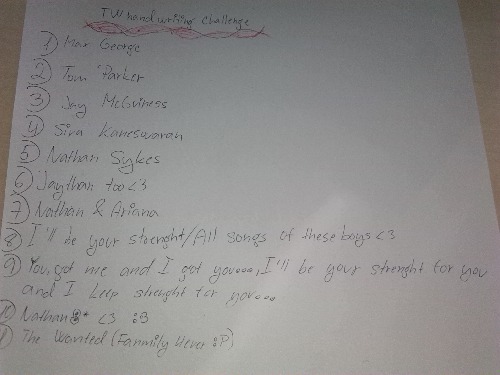 TW handwriting challenge
1) Max George
2) Tom Parker
3) Jay McGuiness
4) Siva Kaneswaran
5) Nathan Sykes
6) Jaythan too <3
7) Nathan & Ariana
8) I'll be your strenght/All songs of these boys <3
9) You got me and I got you...., I'll be your strenght for you
and I keep strenght for you....
10) Nathan 8* <3 :3
11) The Wanted (Fanmily 4ever :P)